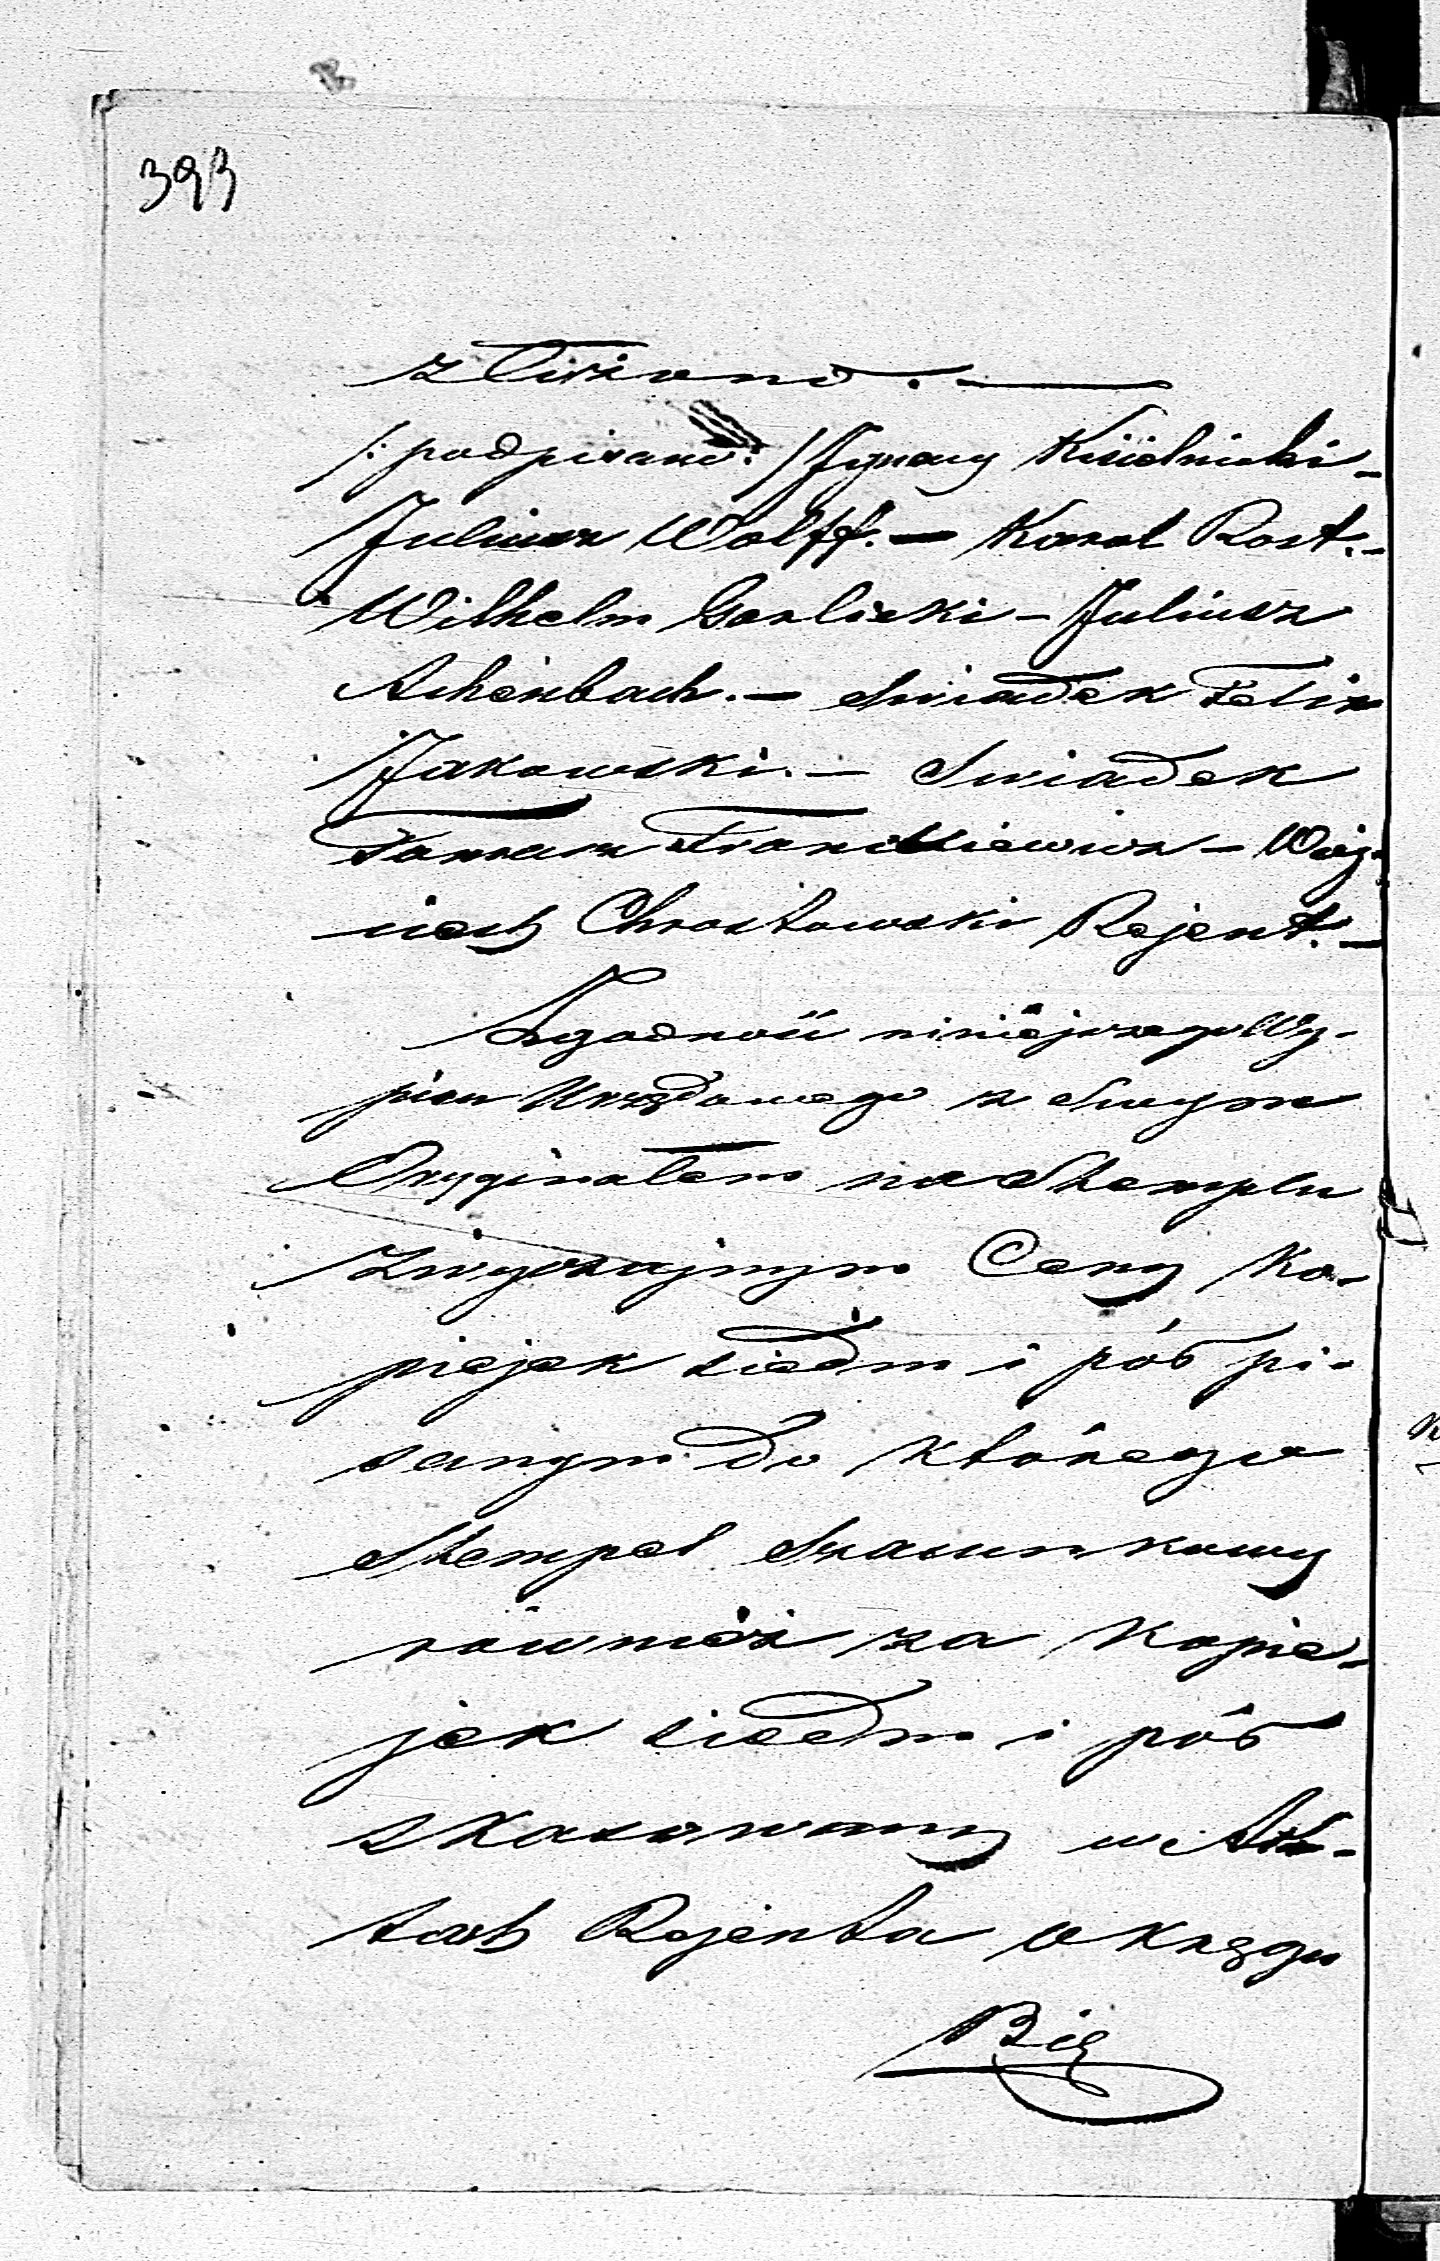 393
złożono. —
/: podpisano: / Ignacy Kisielnicki -
Juliusz Wolff. — Karol Rost. -
Wilhelm Garlicki - Juliusz
Achenbach. — Świadek Felix
Żakowski. — Świadek
Tomasz Franckiewicz - Woj-
ciech Chrostowski Rejent. —
Zgodność niniejszego Wy-
pisu Urzędowego z Swym
Oryginałem na Stemplu
zwyczajnym Ceny Ko-
piejek siedm i pół pi-
sanym do którego
Stempel Szacunkowy
również za Kopie-
jek siedm i pół
skasowany w Ak-
tach Rejenta Okręgu
Bie